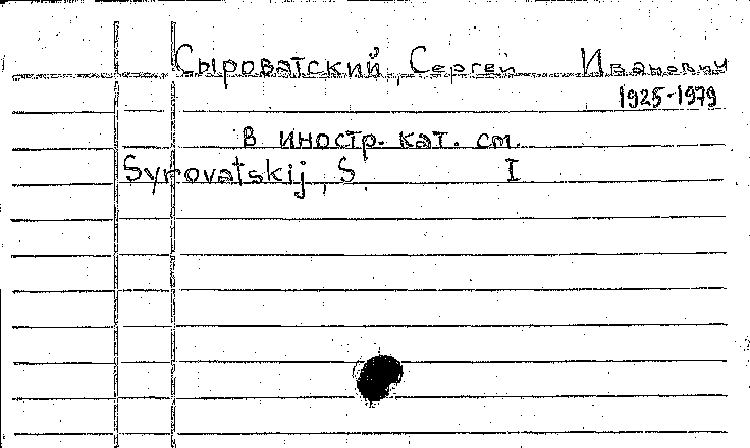 Сыроватский, Сергей Иванович
1925-1979
В иностр. кат. см.
Syrovatskij, S. I